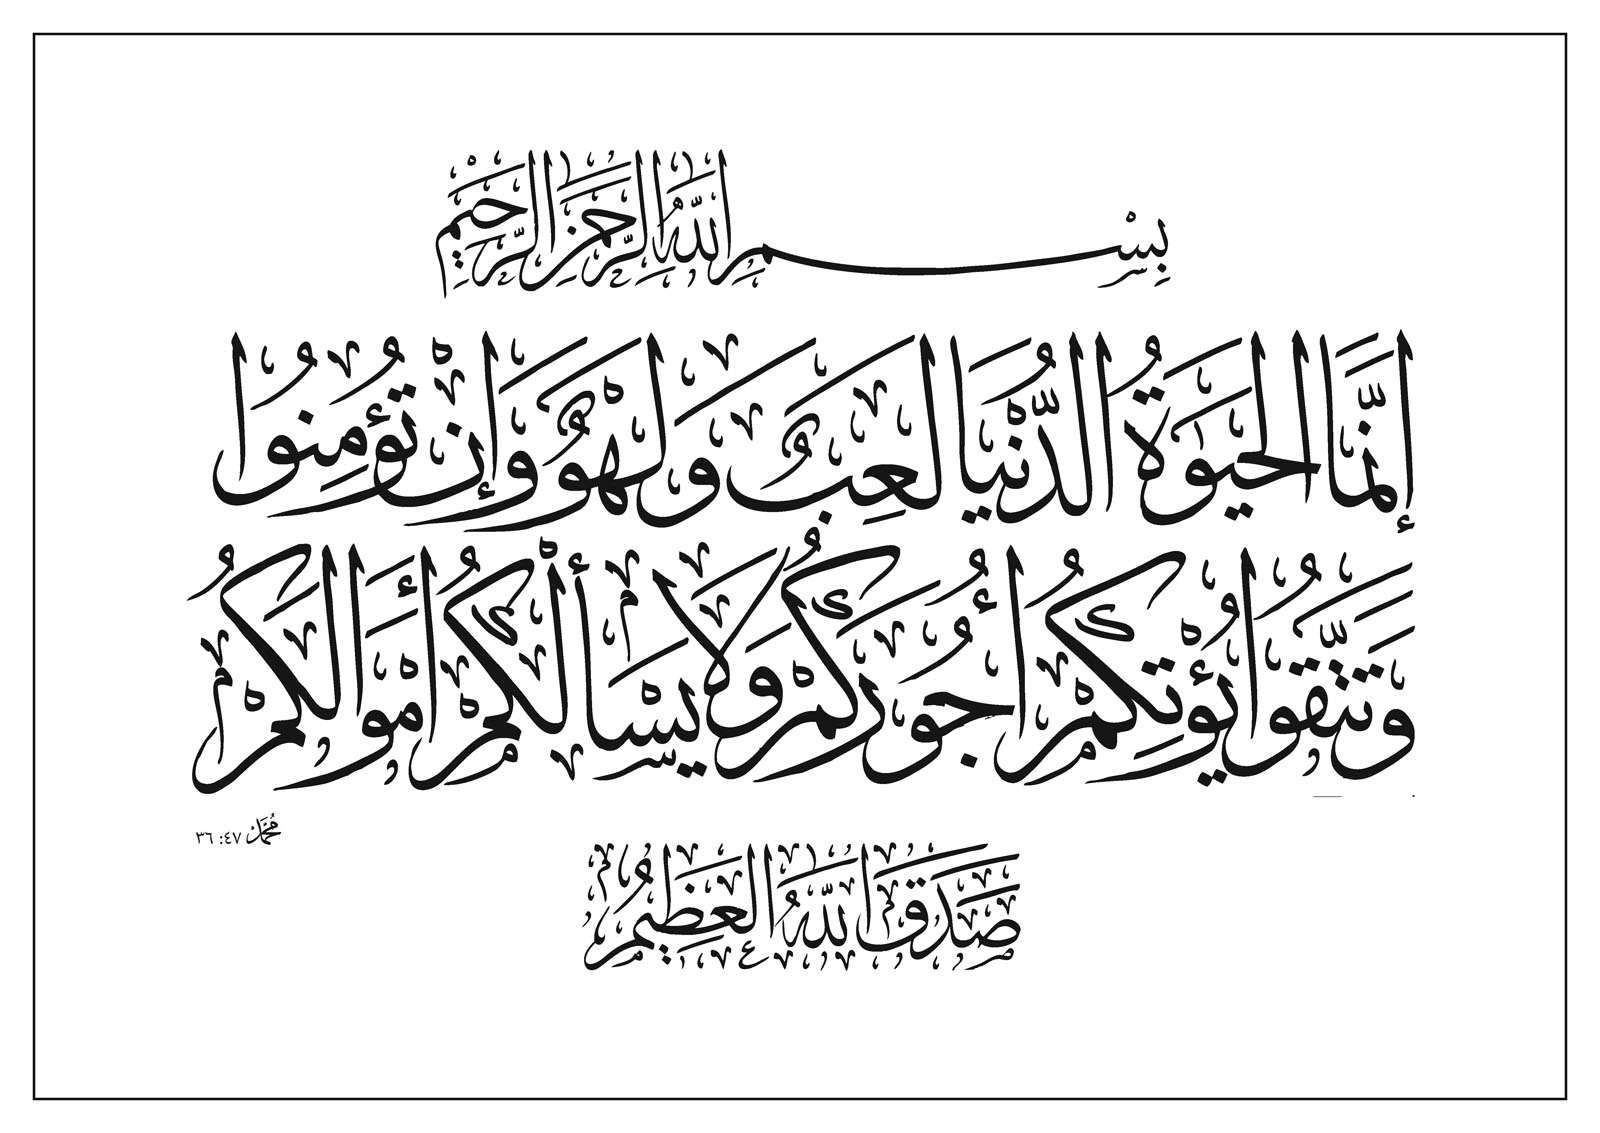 بِسْمِ اللَّهِ الرَّحْمَنِ الرَّحِيمِ
إِنَّمَا الحَيَوٰةُ الدُّنْيَا لَعِبٌ وَلَهْوٌ وَإِنْ تُؤْمِنُوا
وَتَتَّقُوا يُؤْتِكُمْ أُجُورَكُمْ وَلَا يَسْأَلْكُمْ أَمْوَالَكُمْ
مُحَمَّد ٤٧: ٣٦
صَدَقَ اللَّهُ العَظِيمُ